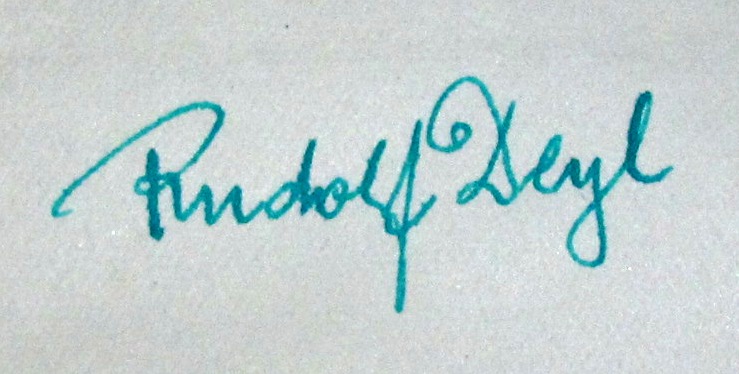 Rudolf Deyl